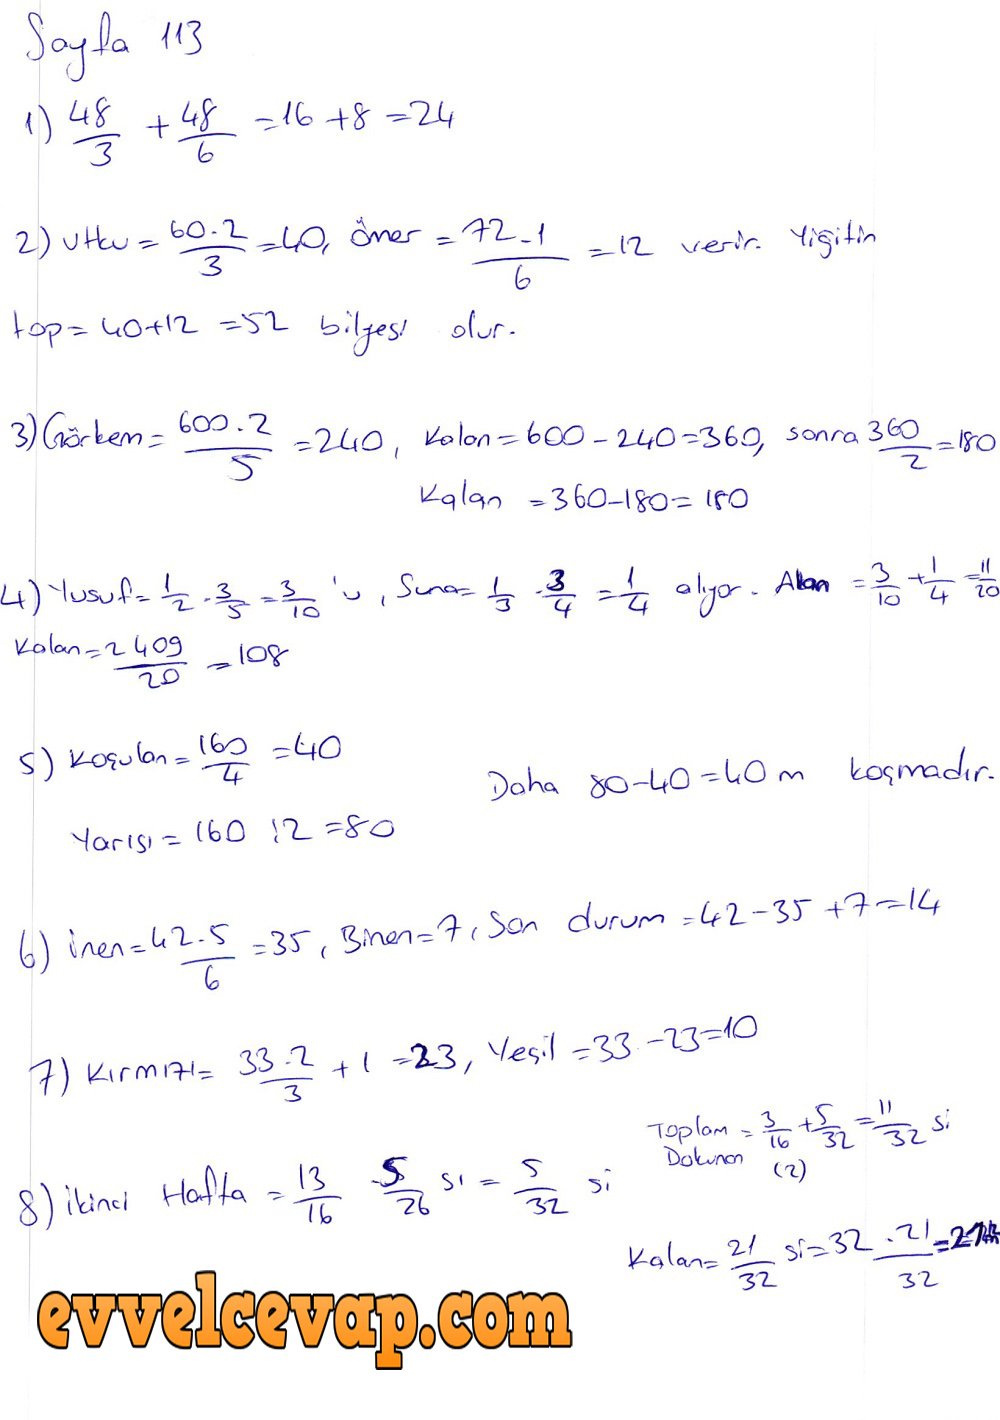 Sayfa 113
1) 48/3 + 48/6 = 16 + 8 = 24
2) Utku = 60.2/3 = 40, Öner = 72.1/6 = 12 verir. Yiğitin
top = 40+12 = 52 bilyesi olur.
3) Görkem = 600.2/5 = 240, Kalan = 600 - 240 = 360, sonra 360/2 = 180
Kalan = 360-180 = 180
4) Yusuf = 1/2 . 3/5 = 3/10 'u, Suna = 1/3 . 3/4 = 1/4 alıyor. Alan = 3/10 + 1/4 = 11/20
Kalan = 2409/20 = 108
5) Koşulan = 160/4 = 40
Daha 80-40 = 40 m koşmadır.
Yarısı = 160 : 2 = 80
6) inen = 42.5/6 = 35, Binen = 7, Son durum = 42 - 35 + 7 = 14
7) Kırmızı = 33.2/3 + 1 = 23, Yeşil = 33 - 23 = 10
Toplam = 3/16 + 5/32 = 11/32 si
Dokunan (2)
8) ikinci Hafta = 13/16 . 5/26 sı = 5/32 si
Kalan = 21/32 si = 32 . 21/32 =
evvelcevap.com